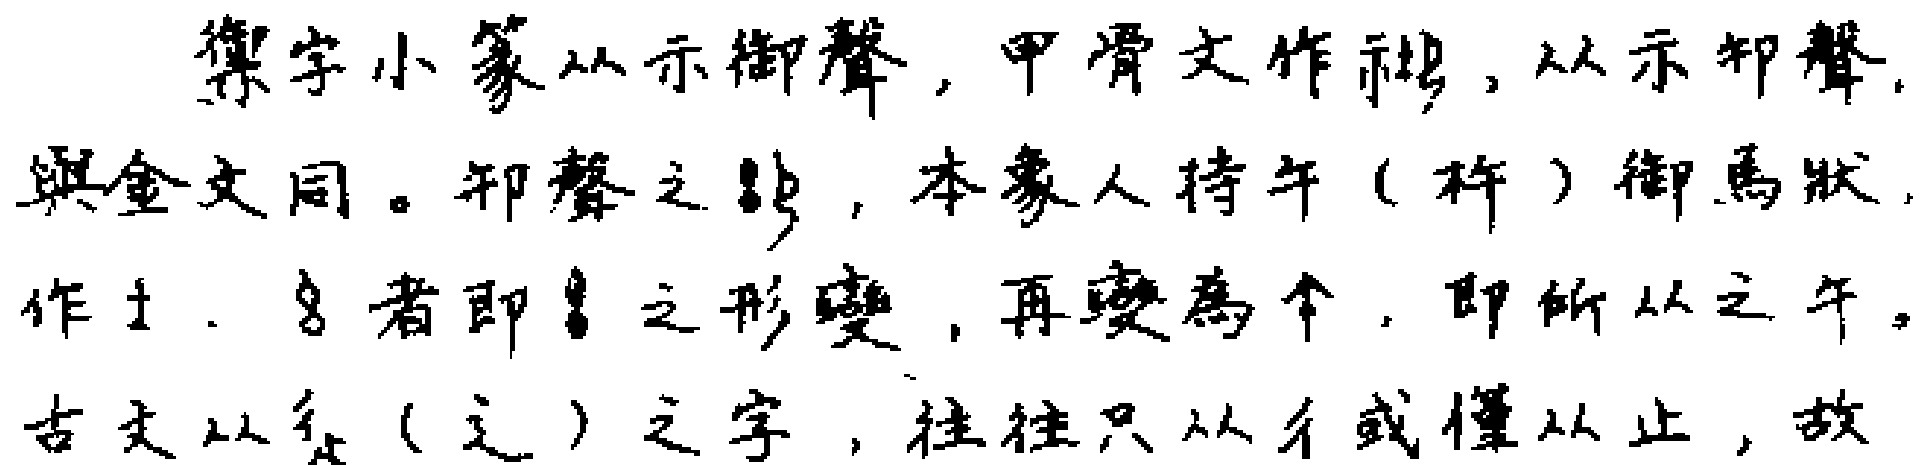 禦字小篆从示御聲,甲骨文作,从示卸聲,
與金文同。卸聲之,本象人持午(杵)御馬狀,
作,者即之形變,再變爲,即所从之午。
古文从(辵)之字,往往只从彳或僅从止,故